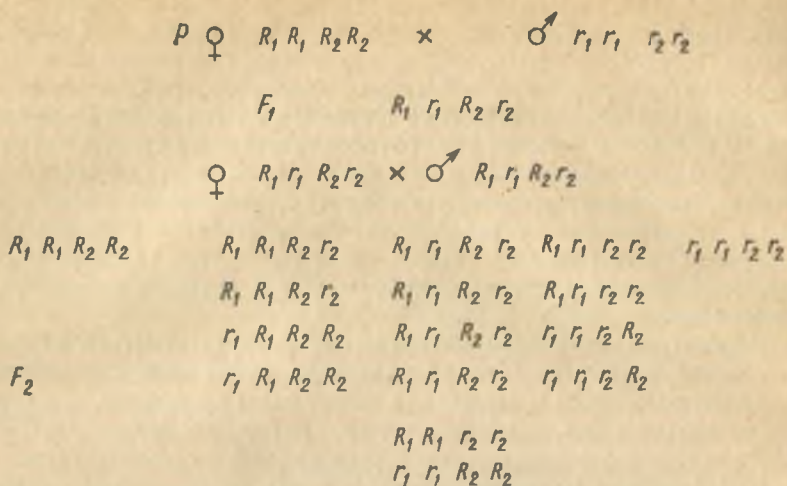 P ♀ R₁ R₁ R₂ R₂ × ♂ r₁ r₁ r₂ r₂
F₁ R₁ r₁ R₂ r₂
♀ R₁ r₁ R₂ r₂ × ♂ R₁ r₁ R₂ r₂
R₁ R₁ R₂ R₂ R₁ R₁ R₂ r₂ R₁ r₁ R₂ r₂ R₁ r₁ r₂ r₂ r₁ r₁ r₂ r₂
R₁ R₁ R₂ r₂ R₁ r₁ R₂ r₂ R₁ r₁ r₂ r₂
r₁ R₁ R₂ R₂ R₁ r₁ R₂ r₂ r₁ r₁ r₂ R₂
F₂ r₁ R₁ R₂ R₂ R₁ r₁ R₂ r₂ r₁ r₁ r₂ R₂
R₁ R₁ r₂ r₂
r₁ r₁ R₂ R₂